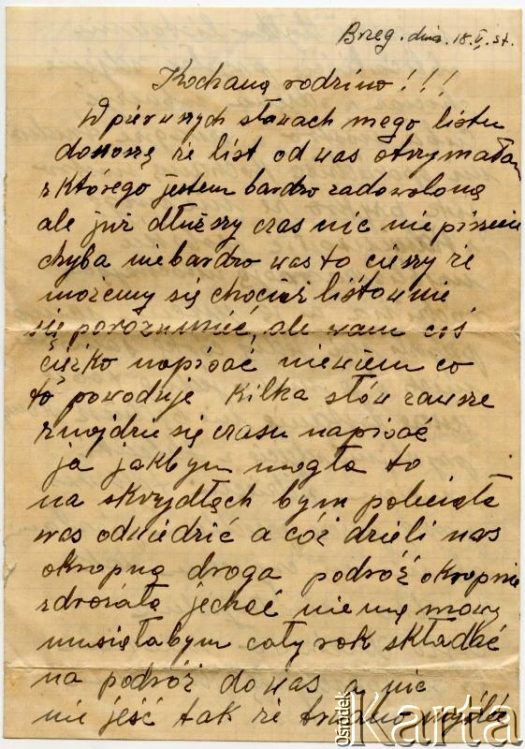 Brzeg. dnia. 18.V.57.
Kochaną rodzino!!!
W pierwszych słowach mego listu
donoszę że list od was otrzymałam
z którego jestem bardzo zadowoloną
ale już dłuższy czas nic niepiszecie
chyba niebardzo was to cieszy że
możemy się chocież listownie
się porozumieć, ale wam coś
ciężko napisać niewiem co
to powoduje Kilka słów zawsze
znajdzie się czasu napisać
ja jakbym mogła to
na skrzydłach bym poleciała
was odwiedzić a cóż dzieli nas
okropną droga podróż okropnie
zdrożała jechać niemę mowy
musiałabym cały rok składać
na podróż do was a nic
nie jeść tak że trudno
Ośrodek Karta